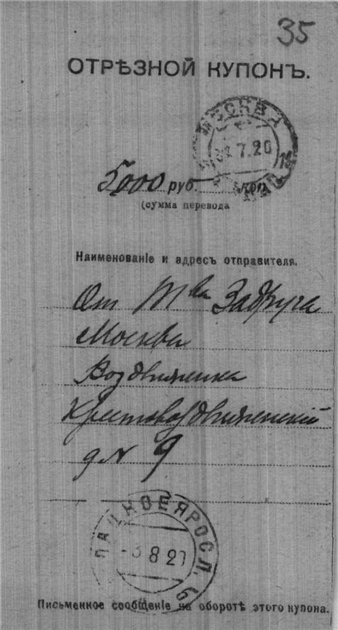 35
ОТРѢЗНОЙ КУПОНЪ.
МОСКВА
7.20
5000 руб. коп.
(сумма перевода
Наименованіе и адресъ отправителя.
От Т ва Задруга
Москва
Воздвиженка
Крестовоздвиженский
д N 9
ЯРОСЛ.
8 2
Письменное сообщеніе на оборотѣ этого купона.